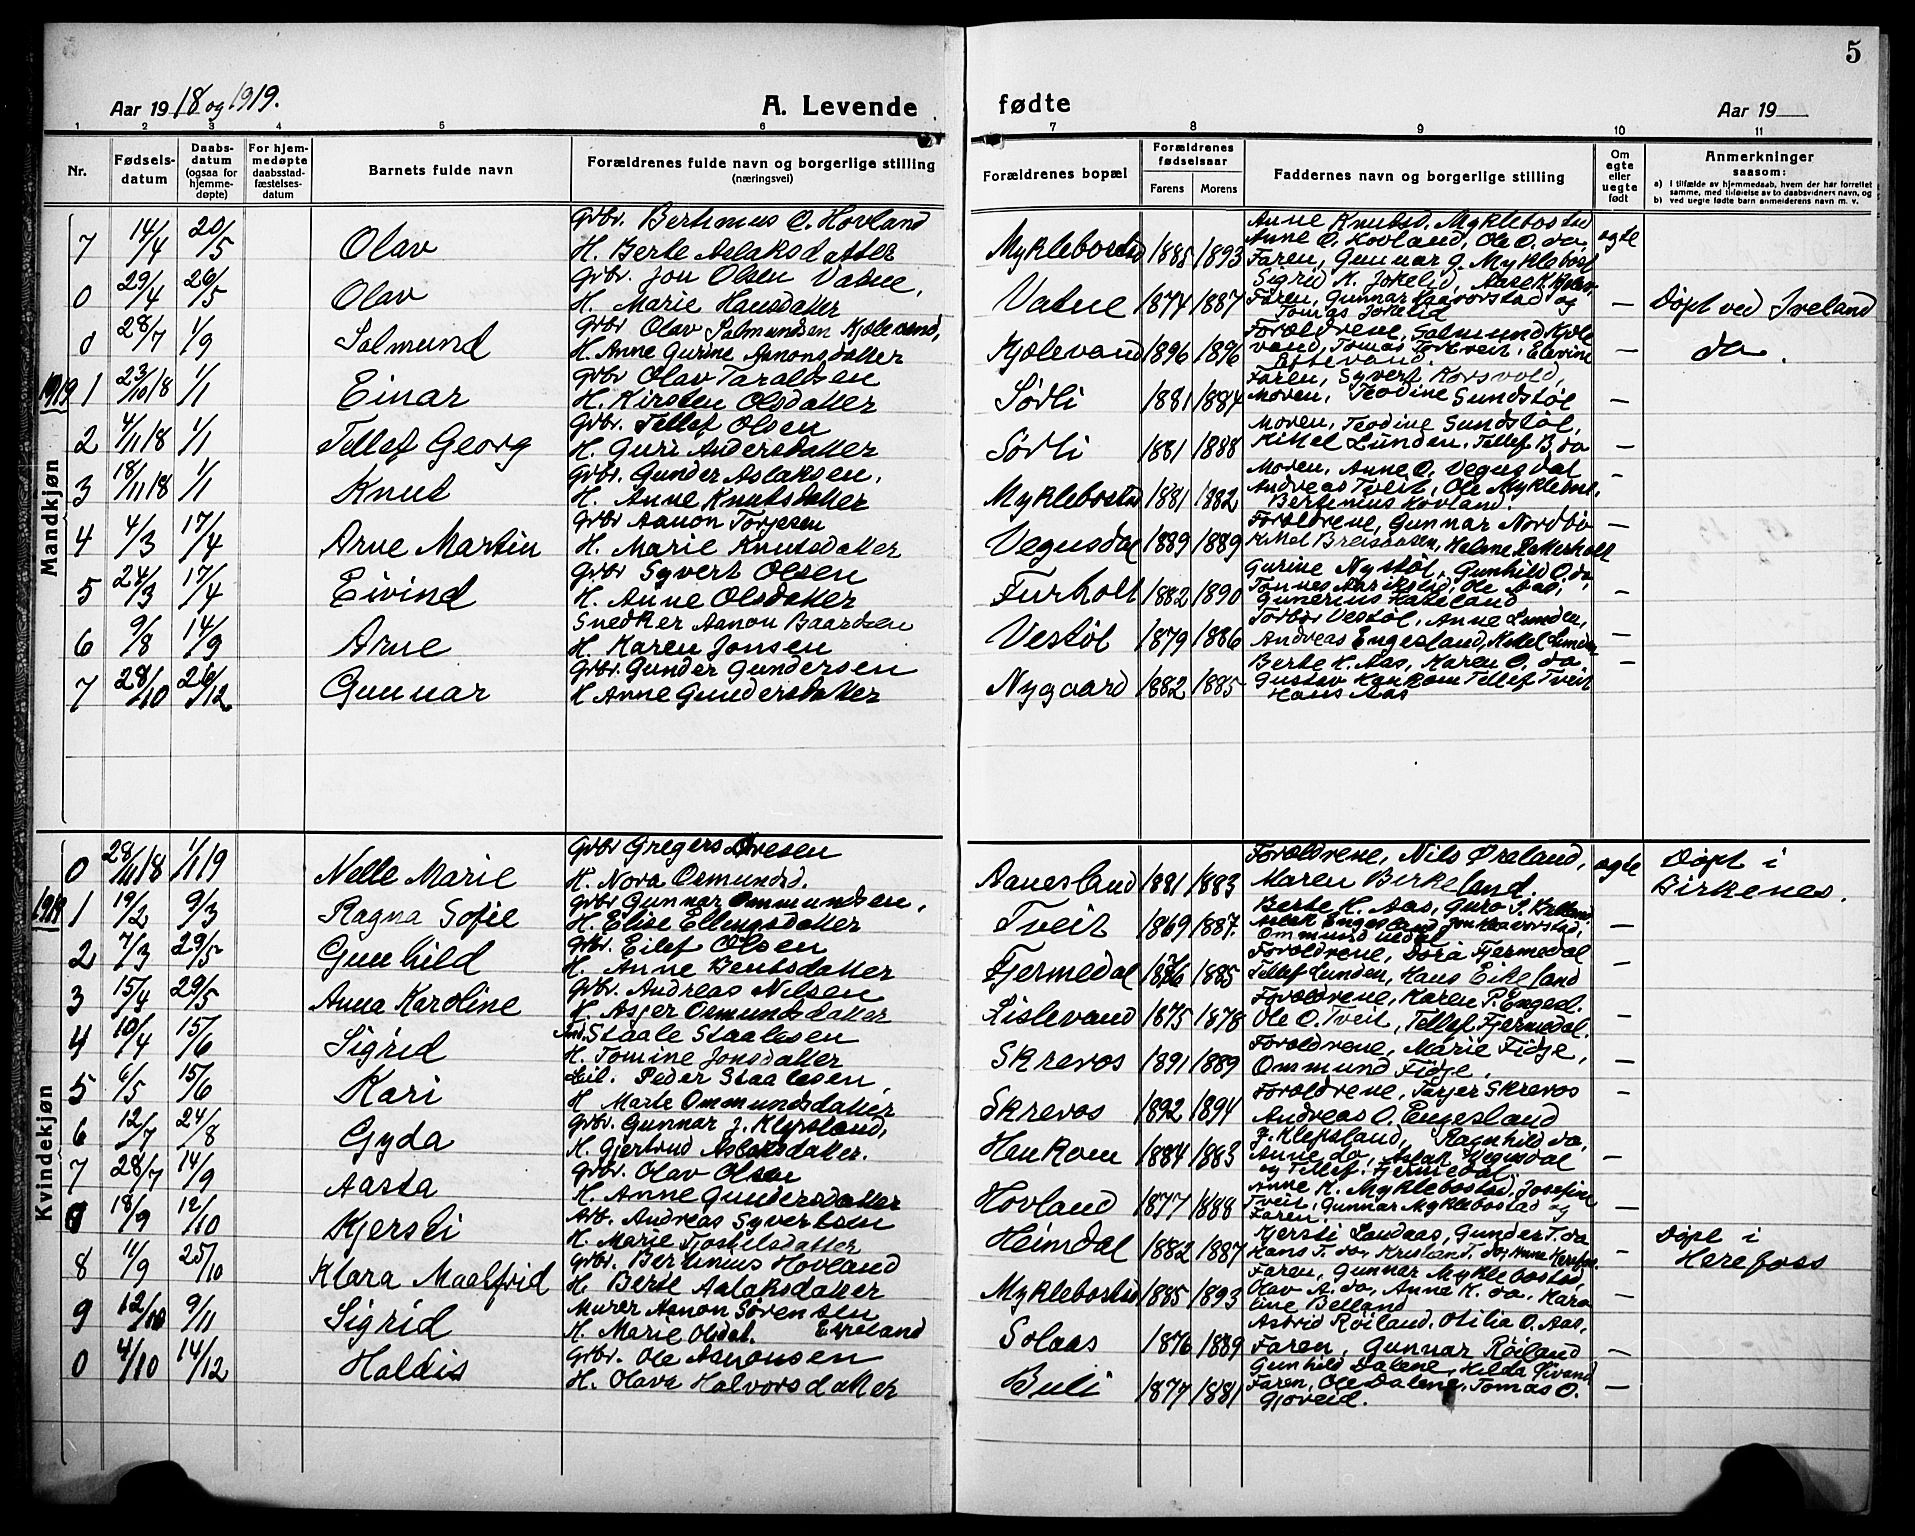 5
Aar 1918 og 1919.
A. Levende fødte
Aar 19
1 2 3 4 5 6 7 8 9 10 11
Nr.
Fødsels-datum
Daabs-datum (ogsaa for hjemme-døpte)
For hjem-medøpte daabsstad-fæstelses-datum
Barnets fulde navn
Forældrenes fulde navn og borgerlige stilling (næringsvei)
Forældrenes bopæl
Forældrenes fødselsaar
Farens
Morens
Faddernes navn og borgerlige stilling
Om egte eller uegte født
Anmerkninger saasom:
a) I tilfælde av hjemmedaab, hvem der har forrettet samme, med tilføielse av to daabsvidners navn, og
b) ved uegte fødte barn anmelderens navn m. v.
Mandkjøn
7 14/4 20/5 Olav
Grbr. Bertinius O. Hovland
H. Berte Aslaksdatter
Myklebostad 1885 1893
Anne Knutsd. Myklebostad
Anne O. Hovland, Ole O. do,
Faren, Gunnar G. Myklebost.
ægte
0 29/4 26/5 Olav
Grbr. Jon Olsen Vatne,
H. Marie Hansdatter
Vatne 1874 1887
Sigrid K. Jokelid,
Faren, Gunnar Haavorstad og
Tomas Jokelid
— Døpt ved Iveland
0 28/7 1/9 Salmund
Grbr Olav Salmundsen Kjølevand,
H. Anne Gurine Aanonsdatter
Kjølevand 1896 1896
Forældrene, Salmund Kjøle
vand, Tomas Tortveit, Elevine
— do.
1919 1 23/10 18 1/1 Einar
Grbr Olav Taraldsen
H. Kirsten Olsdatter
Sørli 1881 1884
Faren, Syvert Korsvold,
Moren, Teodine Sundstøl
—
2 4/11 18 1/1 Tellef Georg
Grbr. Tellef Olsen
H. Guri Andersdatter
Sørli 1881 1888
Moren, Teodine Sundstøl,
Mikel Lunden, Tellef B. do
—
3 18/11 18 1/1 Knut
Grbr. Gunder Aslaksen,
H. Anne Knutsdatter
Myklebostad 1881 1882
Moren, Anne O. Vegusdal
Andreas Tveit, Ole Myklebost.
Bertinius Hovland.
—
4 4/3 17/4 Arne Martin
Grbr Aanon Torjesen
H. Marie Knutsdatter
Vegusdal 1889 1889
Forældrene, Gunnar Nordbø
—
5 24/3 17/4 Eivind
Grbr. Syvert Olsen
H. Anne Olsdatter
Furholt 1882 1890
Gurine Nystøl, Gunhild O. do,
Gunerius Hateland
—
6 9/8 14/9 Arne
Snedker Aanon Baardsen
H. Karen Jonsen
Vestøl 1879 1886
Torbør Vestøl, Anne Lunden,
Andreas Engesland, Ketel Lunden
—
7 28/10 26/12 Gunnar
Grbr. Gunder Gundersen
H Anne Gundersdatter
Nygaard 1882 1885
Berte H. Aas, Karen O. do
Gustav Haukom Tellef Tveit
Hans Aas
—
Kvindekjøn
0 28/11 18 1/1 19 Nelle Marie
Grbr Gregers Øvesen
H. Nora Osmundsd.
Aanesland 1881 1883
Forældrene, Nils Øreland,
Maren Birkeland.
ægte Døpt i
Birkenes.
1919 1 19/2 9/3 Ragna Sofie
Grbr Gunnar Ommundsen,
H. Elise Ellingsdatter
Tveit 1869 1887
Berte H. Aas,
Aslak Engesland, Jon Haavorstad,
Ommund Uedal
—
2 7/3 29/5 Gunhild
Grbr. Eilef Olsen
H. Anne Bentsdatter
Fjermedal 1876 1885
Forældrene, Dora Fjermedal
Tellef Lunden, Hans Eikeland
—
3 15/4 29/5 Anna Karoline
Grbr. Andreas Nilsen
H. Asjer Osmundsdatter
Lislevand 1875 1878
Forældrene, Karen P. Engesl.
Ole O. Tveit, Tellef Fjermedal.
—
4 10/4 15/6 Sigrid
Staale Staalesen
H. Tomine Jonsdatter
Skreros 1891 1889
Forældrene, Marie Fidje,
Ommund Fidje.
—
5 6/5 15/6 Kari
Leil. Peder Staalesen,
H. Marte Ommundsdatter
Skreros 1892 1894
Forældrene, Tarjer Skreros
Andreas O. Engesland
—
6 12/7 24/8 Gyda
Grbr. Gunnar J. Klepsland,
H. Gjertrud Aslaksdatter.
Haukom 1884 1883
J. Klepsland, Ragnhild do,
Anne do, Aslak Vegusdal
og Tellef Fjermedal
—
7 28/7 14/9 Aasta
Grbr. Olav Olsen
H. Anne Gundersdatter
Hovland 1877 1888
Anne K. Myklebostad, Josefine
Tveit, Gunnar Myklebostad og
Faren.
0 18/9 12/10 Kjersti
Arb. Andreas Syvertsen
H. Marie Tjostelsdatter
Heimdal 1882 1887
Kjersti Landaas, Gunder T. do
Hans T. do, Kristian T. do,
— Døpt i
Herefoss
8 11/9 25/10 Klara Maalfrid
Grbr. Bertinius Hovland
H. Berte Aslaksdatter
Myklebostad 1885 1893
Faren, Gunnar Myklebostad
Olav A. do, Anne K. do, Karo
line Belland
—
9 12/10 9/11 Sigrid
Murer Aanon Sørensen
H. Marie Olsdat. Espeland
Solaas 1876 1889
Astrid Røiland, Otilia O. Aas,
Faren, Gunnar Røiland
—
0 4/10 14/12 Haldis
Grbr. Ole Aanonsen
H. Olava Halvorsdatter
Buli 1877 1881
Gunhild Dalene, Hilda
Faren, Ole Dalene, Tomas O.
—